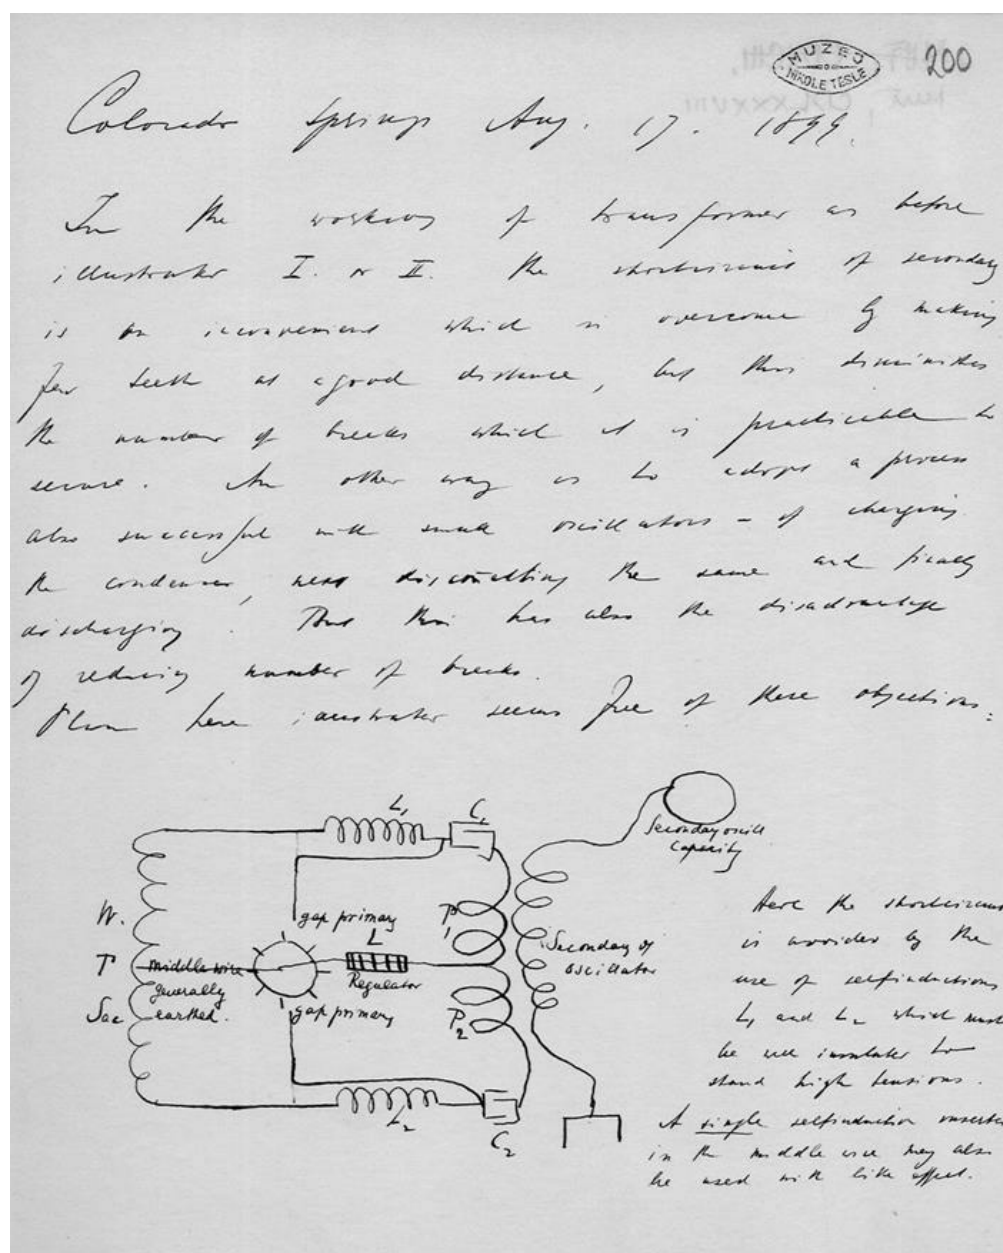 MUZEJ
NIKOLE TESLE
200
Colorado Springs Aug. 17. 1899.
In the working of transformer as before
illustrated I. or II. the shortcircuit of secondary
is an inconvenient which is overcome by making
few teeth at a good distance, but this diminishes
the number of breaks which it is practicable to
secure. An other way is to adopt a process
also successful with small oscillators – of charging
the condenser, next disconnecting the same and finally
discharging. But this has also the disadvantage
of reducing number of breaks.
Plan here illustrated seems free of these objections:
L1
C1
Secondary oscill
capacity
W.
T
Sec
gap primary
P1
L
middle wire
generally
earthed.
Regulator
gap primary
P2
Secondary of
oscillator
L2
C2
Here the shortcircuit
is avoided by the
use of selfinductions
L1 and L2 which must
be well insulated to
stand high tensions.
A single selfinduction inserted
in the middle wire may also
be used with like effect.